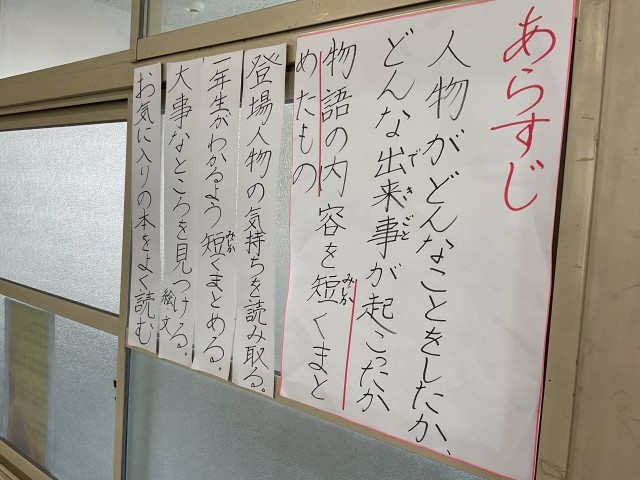 あらすじ
人物がどんなことをしたか、
どんな出来事が起こったか
できごと
物語の内容を短くまと
みじか
めたもの
登場人物の気持ちを読み取る。
一年生がわかるよう短くまとめる。
みじか
大事なところを見つける。
絵 文
お気に入りの本をよく読む